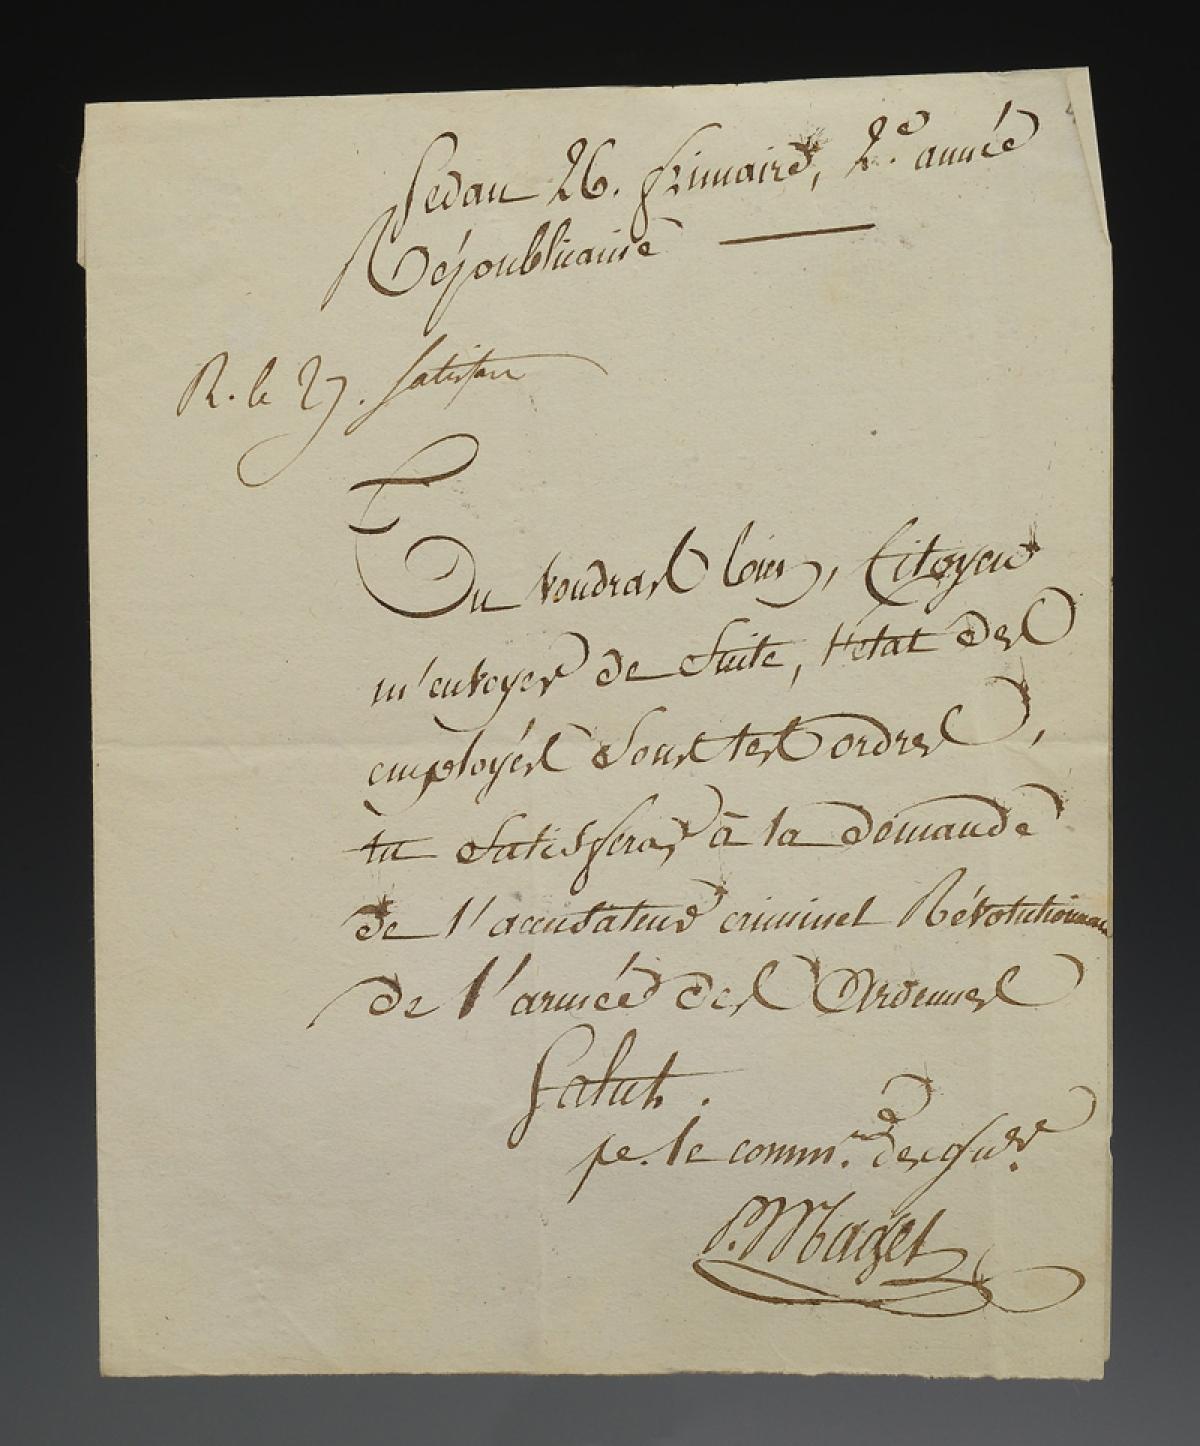 Sedan 26. frimaire, 2.e année
Républicaine
R. le 27. satisfait
Tu voudras bien, Citoyen
m'envoyer de suite, l'état des
employés sous tes ordres,
tu satisferas à la demande
de l'accusateur criminel Révolutionnaire
de l'armée des Ardennes
Salut.
pr. le comm.re des guer.
P. Maget